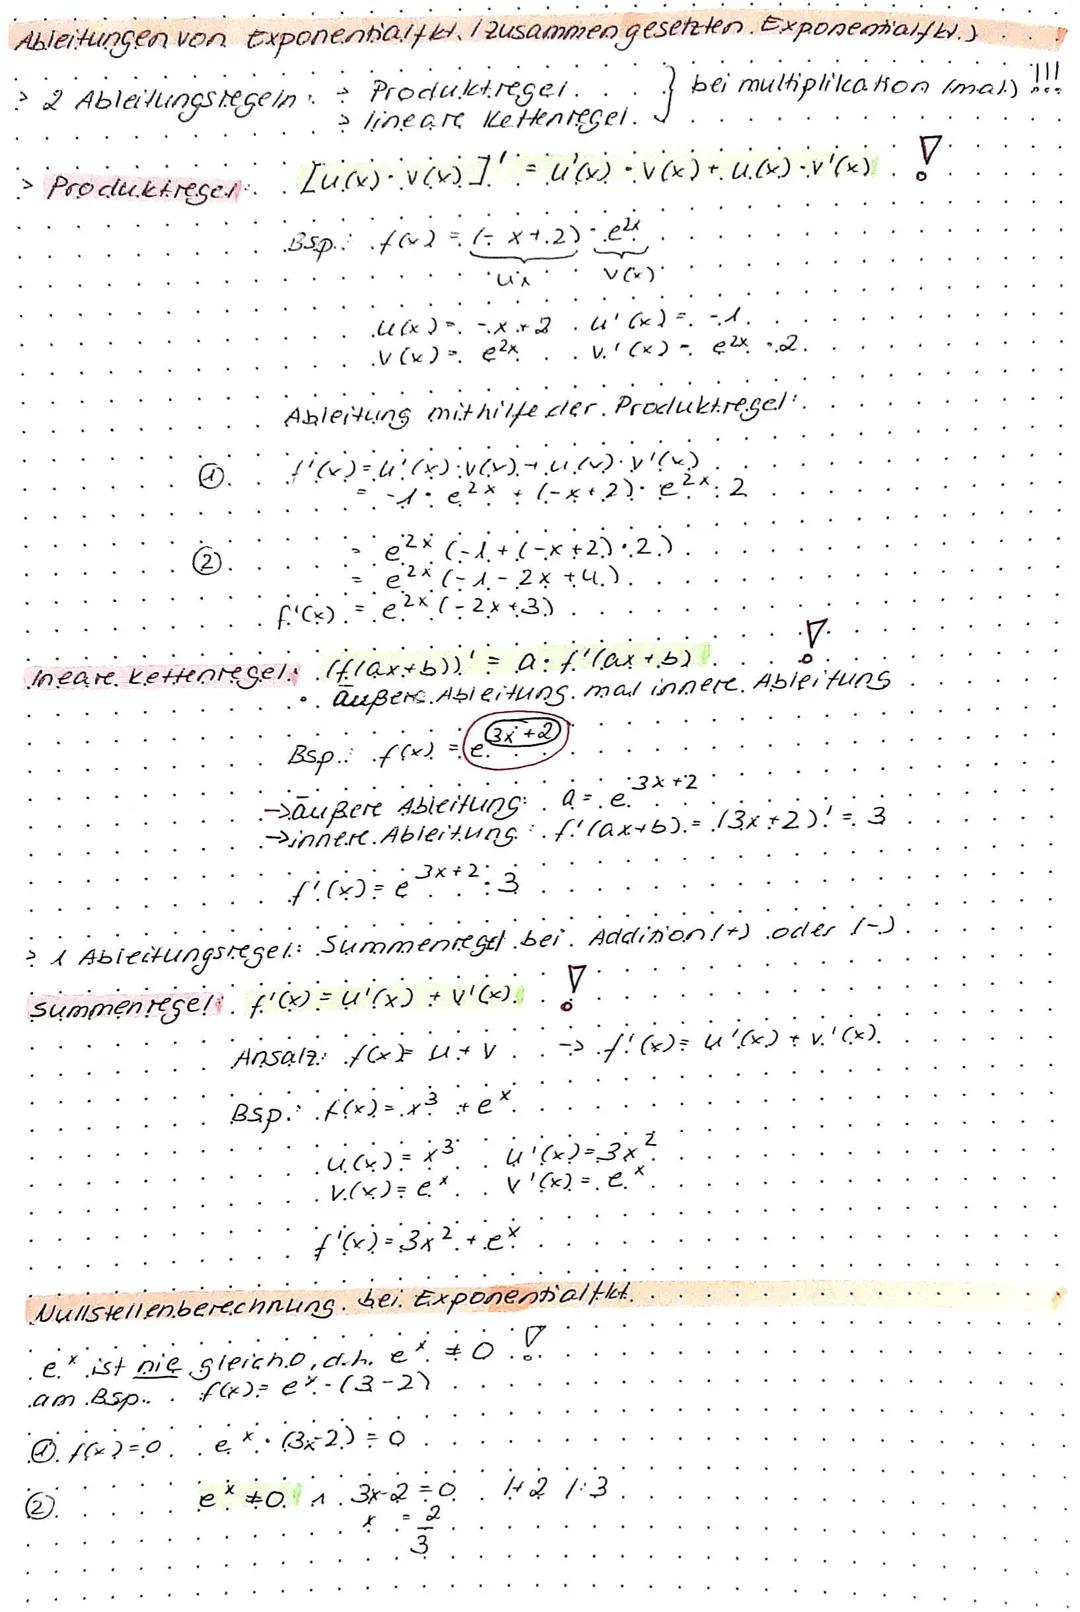 Ableitungen von Exponentialfkt. (zusammengesetzten Exponentialfkt.)
> 2 Ableitungsregeln: > Produktregel } bei multiplikation (mal) !!!
> lineare Kettenregel
> Produktregel: [u(x)·v(x)]' = u'(x)·v(x)+u(x)·v'(x) !
Bsp.: f(x) = (-x+2)·e^2x
ux v(x)
u(x) = -x+2 u'(x) = -1
v(x) = e^2x v'(x) = e^2x ·2
Ableitung mithilfe der Produktregel:
① f'(x)=u'(x)·v(x)+u(x)·v'(x)
= -1· e^2x + (-x+2)· e^2x · 2
② = e^2x (-1+(-x+2)·2)
= e^2x (-1-2x+4)
f'(x) = e^2x (-2x+3)
lneare Kettenregel: (f(ax+b))' = a· f'(ax+b) !
• äußere Ableitung mal innere Ableitung
Bsp.: f(x) = e^3x+2
→äußere Ableitung: a = e^3x+2
→innere Ableitung: f'(ax+b) = (3x+2)' = 3
f'(x) = e^3x+2 · 3
> 1 Ableitungsregel: Summenregel bei Addition (+) oder (-)
Summenregel: f'(x) = u'(x) + v'(x) !
Ansatz: f(x)= u+v -> f'(x)= u'(x) + v'(x)
Bsp.: f(x) = x³ + e^x
u(x)= x³ u'(x)=3x²
v(x)= e^x v'(x) = e^x
f'(x)=3x² + e^x
Nullstellenberechnung bei Exponentialfkt.
e^x ist nie gleich 0, d.h. e^x ≠ 0 !
am Bsp.: f(x)= e^x·(3-2)
① f(x)=0 e^x·(3x-2)=0
② e^x ≠0 ∧ 3x-2=0 |+2 |:3
x = 2/3